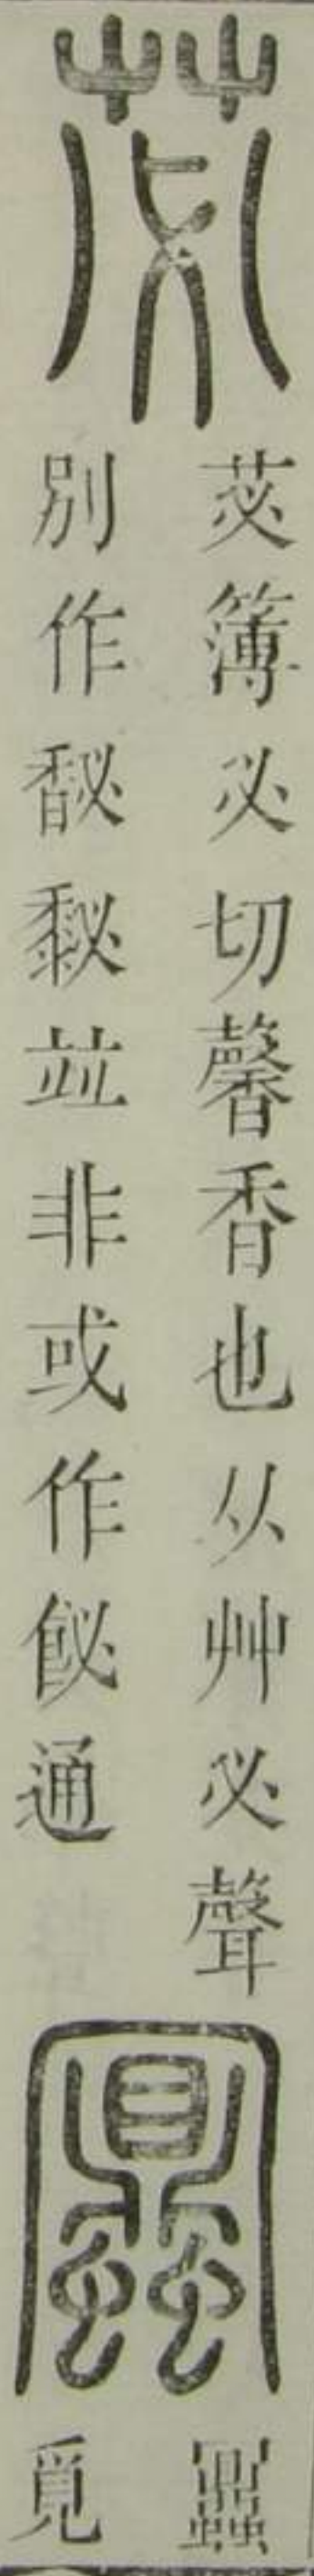 苾
苾簿必切馨香也从艸必聲
別作馝並非或作飶通
覓